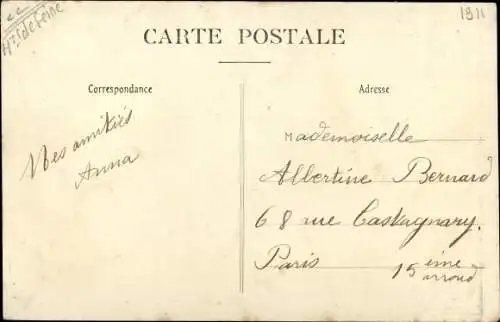 cc
Hts de Seine
1911
CARTE POSTALE
Correspondance
Adresse
Mes amitiés
Anna
Mademoiselle
Albertine Bernard
68 rue Castagnary.
Paris 15 eme
arrond